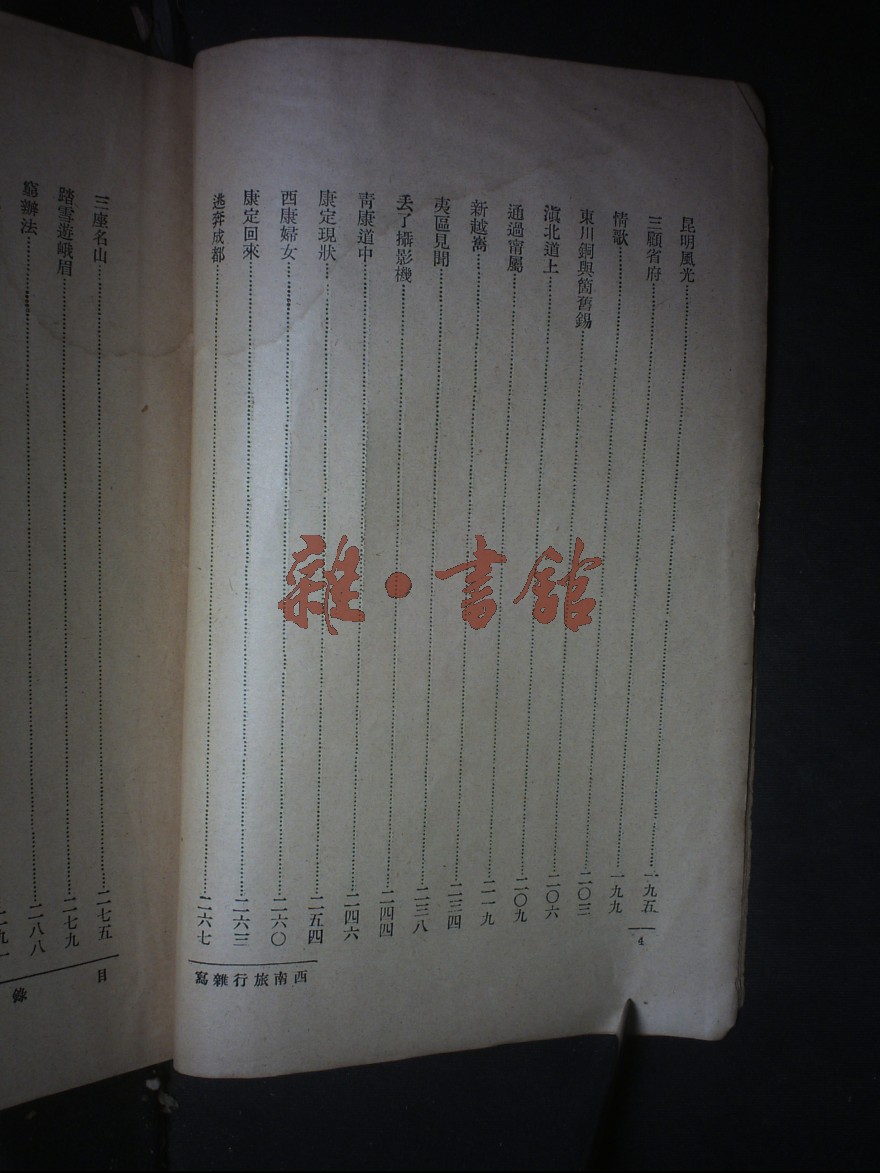 昆明風光……一九五
三顧省府……一九九
情歌……二〇三
東川銅與箇舊錫……二〇六
滇北道上……二〇九
通過甯屬……二一九
新越嶲……二三四
夷區見聞……二三八
丟了攝影機……二四四
青康道中……二四六
康定現狀……二五四
西康婦女……二六〇
康定回來……二六三
逃奔成都……二六七
4
西南旅行雜寫
雜·書館
三座名山……二七五
踏雪遊峨眉……二七九
窮辦法……二八八
目錄